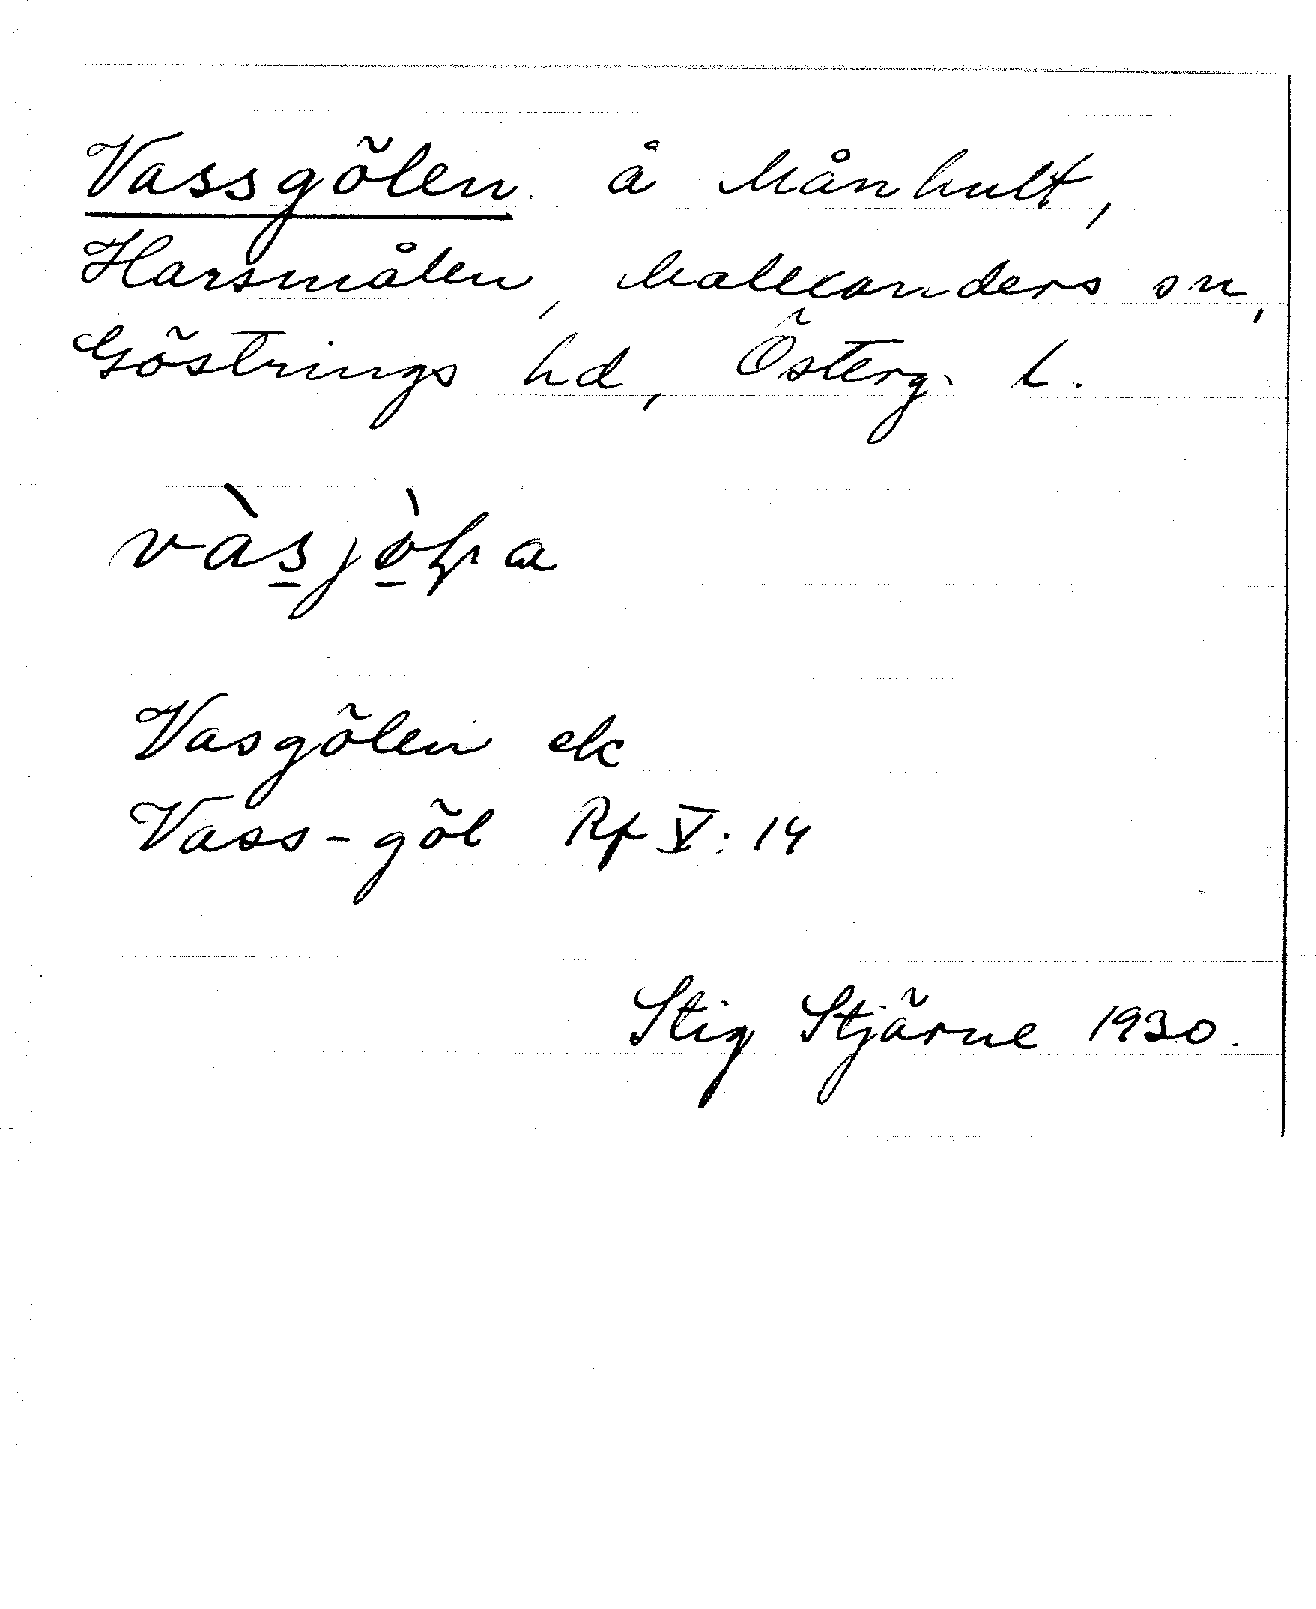 Vassgölen å Månhult,
Harsmålen, Malexanders sn,
Göstrings hd, Österg. L.
Vasgölen ek
Vass-göl Rf V: 14
Stig Stjärne 1930.